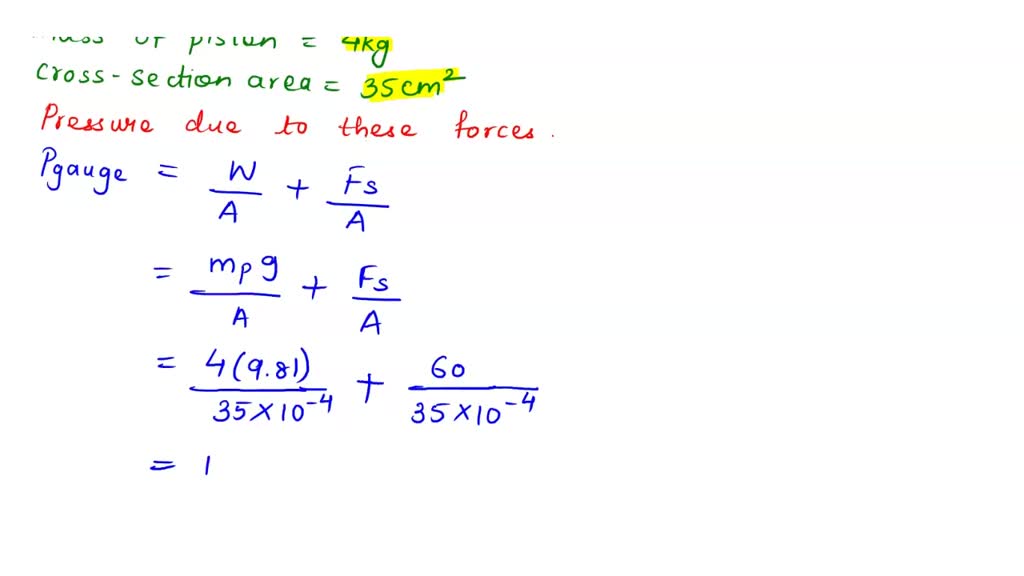 Mass of piston = 4kg
cross-section area = 35cm²
Pressure due to these forces.
Pgauge = W/A + Fs/A
= mp g/A + Fs/A
= 4(9.81)/35×10⁻⁴ + 60/35×10⁻⁴
= 1